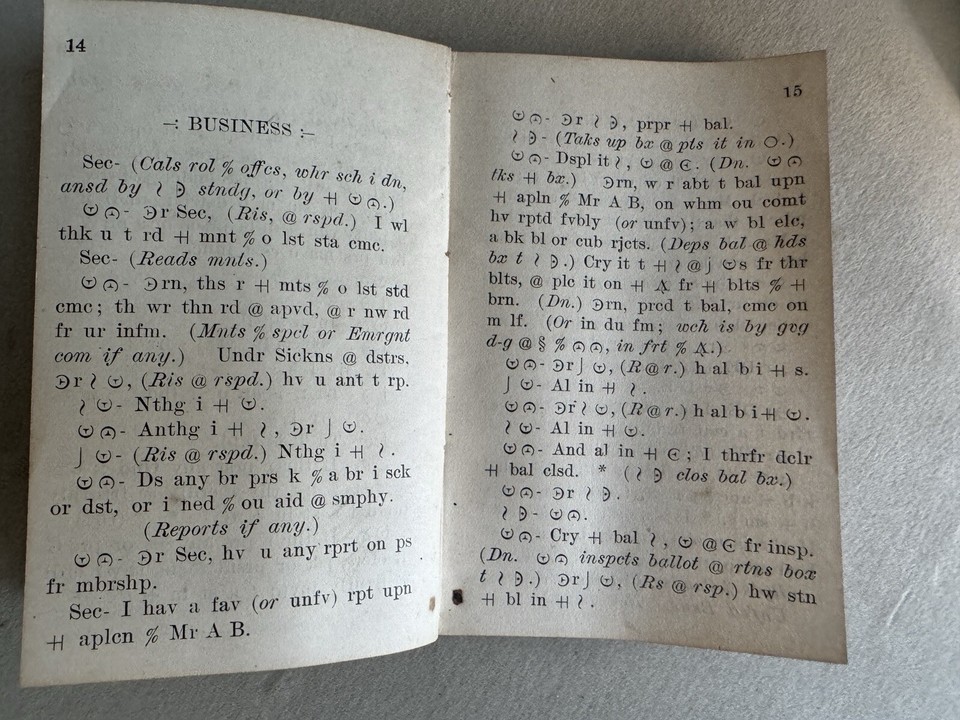 14
-: BUSINESS :-
Sec- (Cals rol % offcs, whr sch i dn,
ansd by ≀ ℈ stndg, or by ⟛ ☉ ᗣ.)
☉ ᗣ- ℈r Sec, (Ris, @ rspd.) I wl
thk u t rd ⟛ mnt % o lst sta cmc.
Sec- (Reads mnts.)
☉ ᗣ- ℈rn, ths r ⟛ mts % o lst std
cmc; th wr thn rd @ apvd, @ r nw rd
fr ur infm. (Mnts % spcl or Emrgnt
com if any.) Undr Sickns @ dstrs,
℈r ≀ ☉, (Ris @ rspd.) hv u ant t rp.
≀ ☉- Nthg i ⟛ ☉.
☉ ᗣ- Anthg i ⟛ ≀, ℈r ⌡ ☉.
⌡ ☉- (Ris @ rspd.) Nthg i ⟛ ≀.
☉ ᗣ- Ds any br prs k % a br i sck
or dst, or i ned % ou aid @ smphy.
(Reports if any.)
☉ ᗣ- ℈r Sec, hv u any rprt on ps
fr mbrshp.
Sec- I hav a fav (or unfv) rpt upn
⟛ aplcn % Mr A B.
15
☉ ᗣ- ℈r ≀ ℈, prpr ⟛ bal.
≀ ℈- (Taks up bx @ pts it in O.)
☉ ᗣ- Dspl it ≀, ☉ @ Є. (Dn. ☉ ᗣ
tks ⟛ bx.) ℈rn, w r abt t bal upn
⟛ apln % Mr A B, on whm ou comt
hv rptd fvbly (or unfv); a w bl elc,
a bk bl or cub rjcts. (Deps bal @ hds
bx t ≀ ℈.) Cry it t ⟛ ≀ @ ⌡ ☉s fr thr
blts, @ plc it on ⟛ A fr ⟛ blts % ⟛
brn. (Dn.) ℈rn, prcd t bal, cmc on
m lf. (Or in du fm; wch is by gvg
d-g @ § % ᗣ ᗣ, in frt % A.)
☉ ᗣ- ℈r ⌡ ☉, (R @ r.) h al b i ⟛ s.
⌡ ☉- Al in ⟛ ≀.
☉ ᗣ- ℈r ≀ ☉, (R @ r.) h al b i ⟛ ☉.
≀ ☉- Al in ⟛ ☉.
☉ ᗣ- And al in ⟛ Є; I thrfr dclr
⟛ bal clsd. * (≀ ℈ clos bal bx.)
☉ ᗣ- ℈r ≀ ℈.
≀ ℈- ☉ ᗣ.
☉ ᗣ- Cry ⟛ bal ≀, ☉ @ Є fr insp.
(Dn. ☉ ᗣ inspcts ballot @ rtns box
t ≀ ℈.) ℈r ⌡ ☉, (Rs @ rsp.) hw stn
⟛ bl in ⟛ ≀.